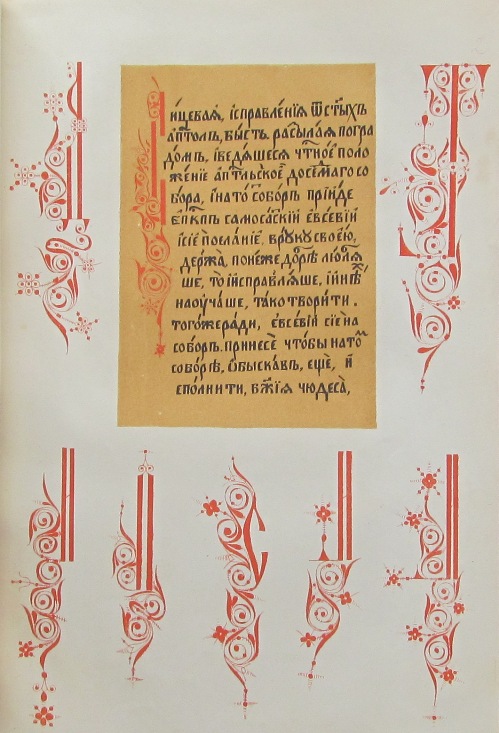 и҆щевая, і҆справленїя ѿст҃ыхъ
а҆пⷭ҇толъ, бы́сть. расыла́я погра
до́мъ, і҆ведѧ́шесѧ чт҃ное поло
же́нїе а҆пⷭ҇тльское, досемаго со
бо́ра, і҆нато собо́ръ прїи́де
е҆пкпъ самосаскїй е҆ѵсе́вїй
і҆сїѐ посланїе, врꙋкꙋ свое́ю,
держа, поне́же доврѣ̀ люблѧ
ше, то і҆справлѧ́ше,
наоуча́ше, та́ко твори́ти.
того́же ра́ди, е҆ѵсе́вїй сїѐ на
собо́ръ. принесѐ что́бы нато
собо́рѣ, ѡ҆быска́въ, е҆щѐ, и҆
е҆спо́лнити, бж҃їѧ чюдеса̀,